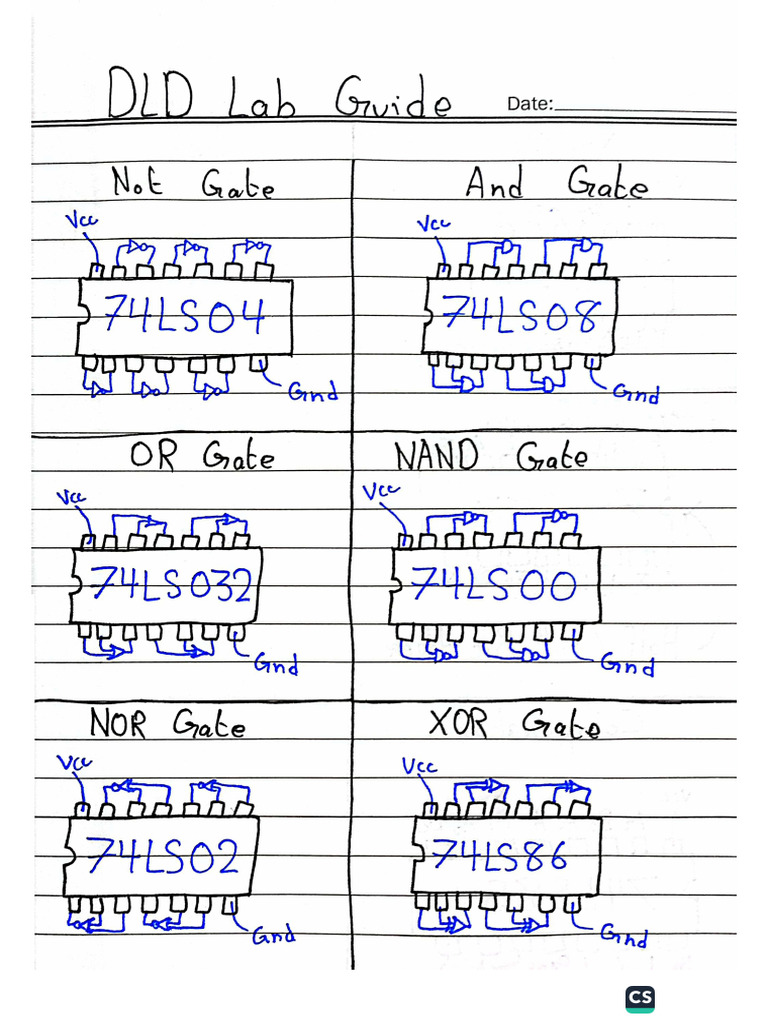 DLD Lab Guide Date:
Not Gate
Vcc
74LS04
Gnd
And Gate
Vcc
74LS08
Gnd
OR Gate
Vcc
74LS032
Gnd
NAND Gate
Vcc
74LS00
Gnd
NOR Gate
Vcc
74LS02
Gnd
XOR Gate
Vcc
74LS86
Gnd
CS